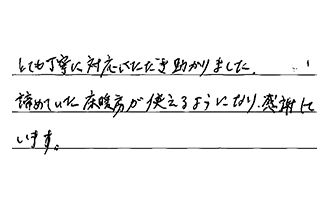 とても丁寧に対応いただき助かりました。
諦めていた床暖房が使えるようになり、感謝して
います。